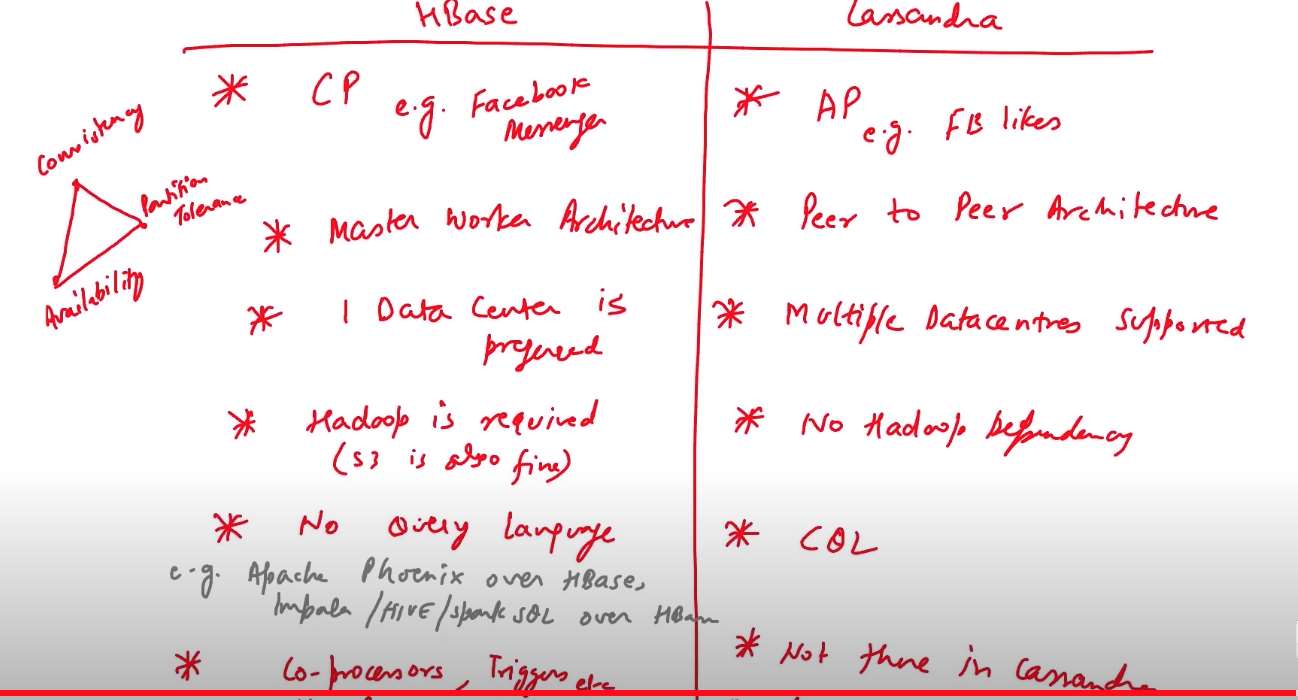 HBase
Cassandra
* CP e.g. Facebook
Messenger
* AP
e.g. FB likes
Consistency
Partition
Tolerance
Availability
* Master Worker Architecture
* Peer to Peer Architecture
* 1 Data Center is
preferred
* Multiple Datacentres Supported
* Hadoop is required
(S3 is also fine)
* No Hadoop Dependency
* No Query language
e.g. Apache Phoenix over HBase,
Impala/HIVE/spark SQL over HBase
* CQL
* Co-processors, Triggers etc
* Not there in Cassandra